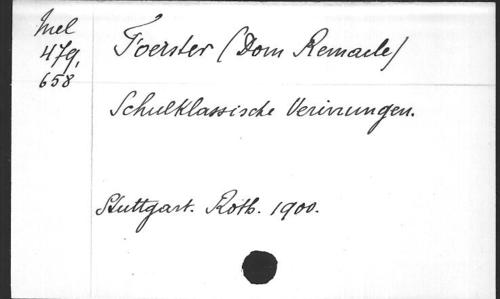 Mel
479,
658
Foerster (Dom Remacle)
Schulklassische Verirrungen.
Stuttgart. Roth. 1900.